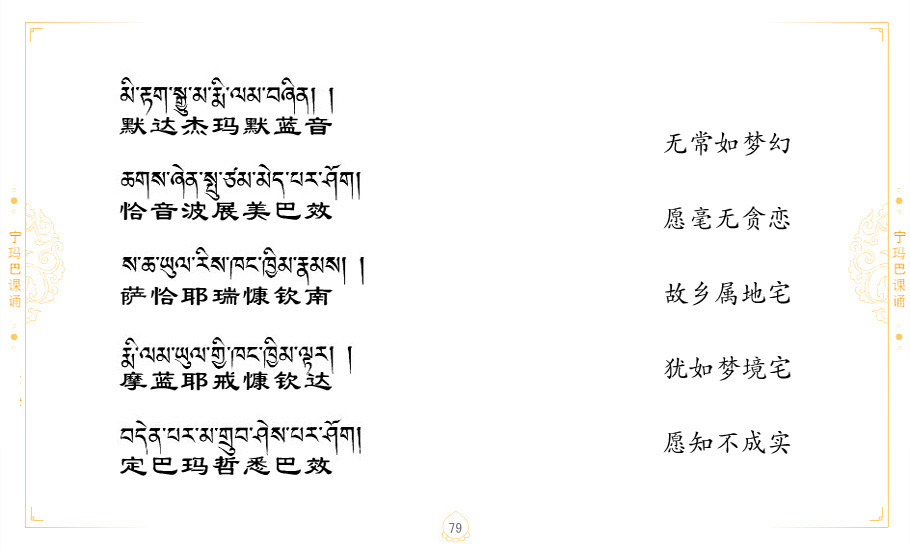 མི་རྟག་སྒྱུ་མ་རྨི་ལམ་བཞིན། །
默达杰玛默蓝音
无常如梦幻
ཆགས་ཞེན་སྤུ་ཙམ་མེད་པར་ཤོག།
恰音波展美巴效
愿毫无贪恋
ས་ཆ་ཡུལ་རིས་ཁང་ཁྱིམ་རྣམས། །
萨恰耶瑞慷钦南
故乡属地宅
རྨི་ལམ་ཡུལ་གྱི་ཁང་ཁྱིམ་ལྟར། །
摩蓝耶戒慷钦达
犹如梦境宅
བདེན་པར་མ་གྲུབ་ཤེས་པར་ཤོག།
定巴玛哲悉巴效
愿知不成实
宁玛巴课诵
宁玛巴课诵
79